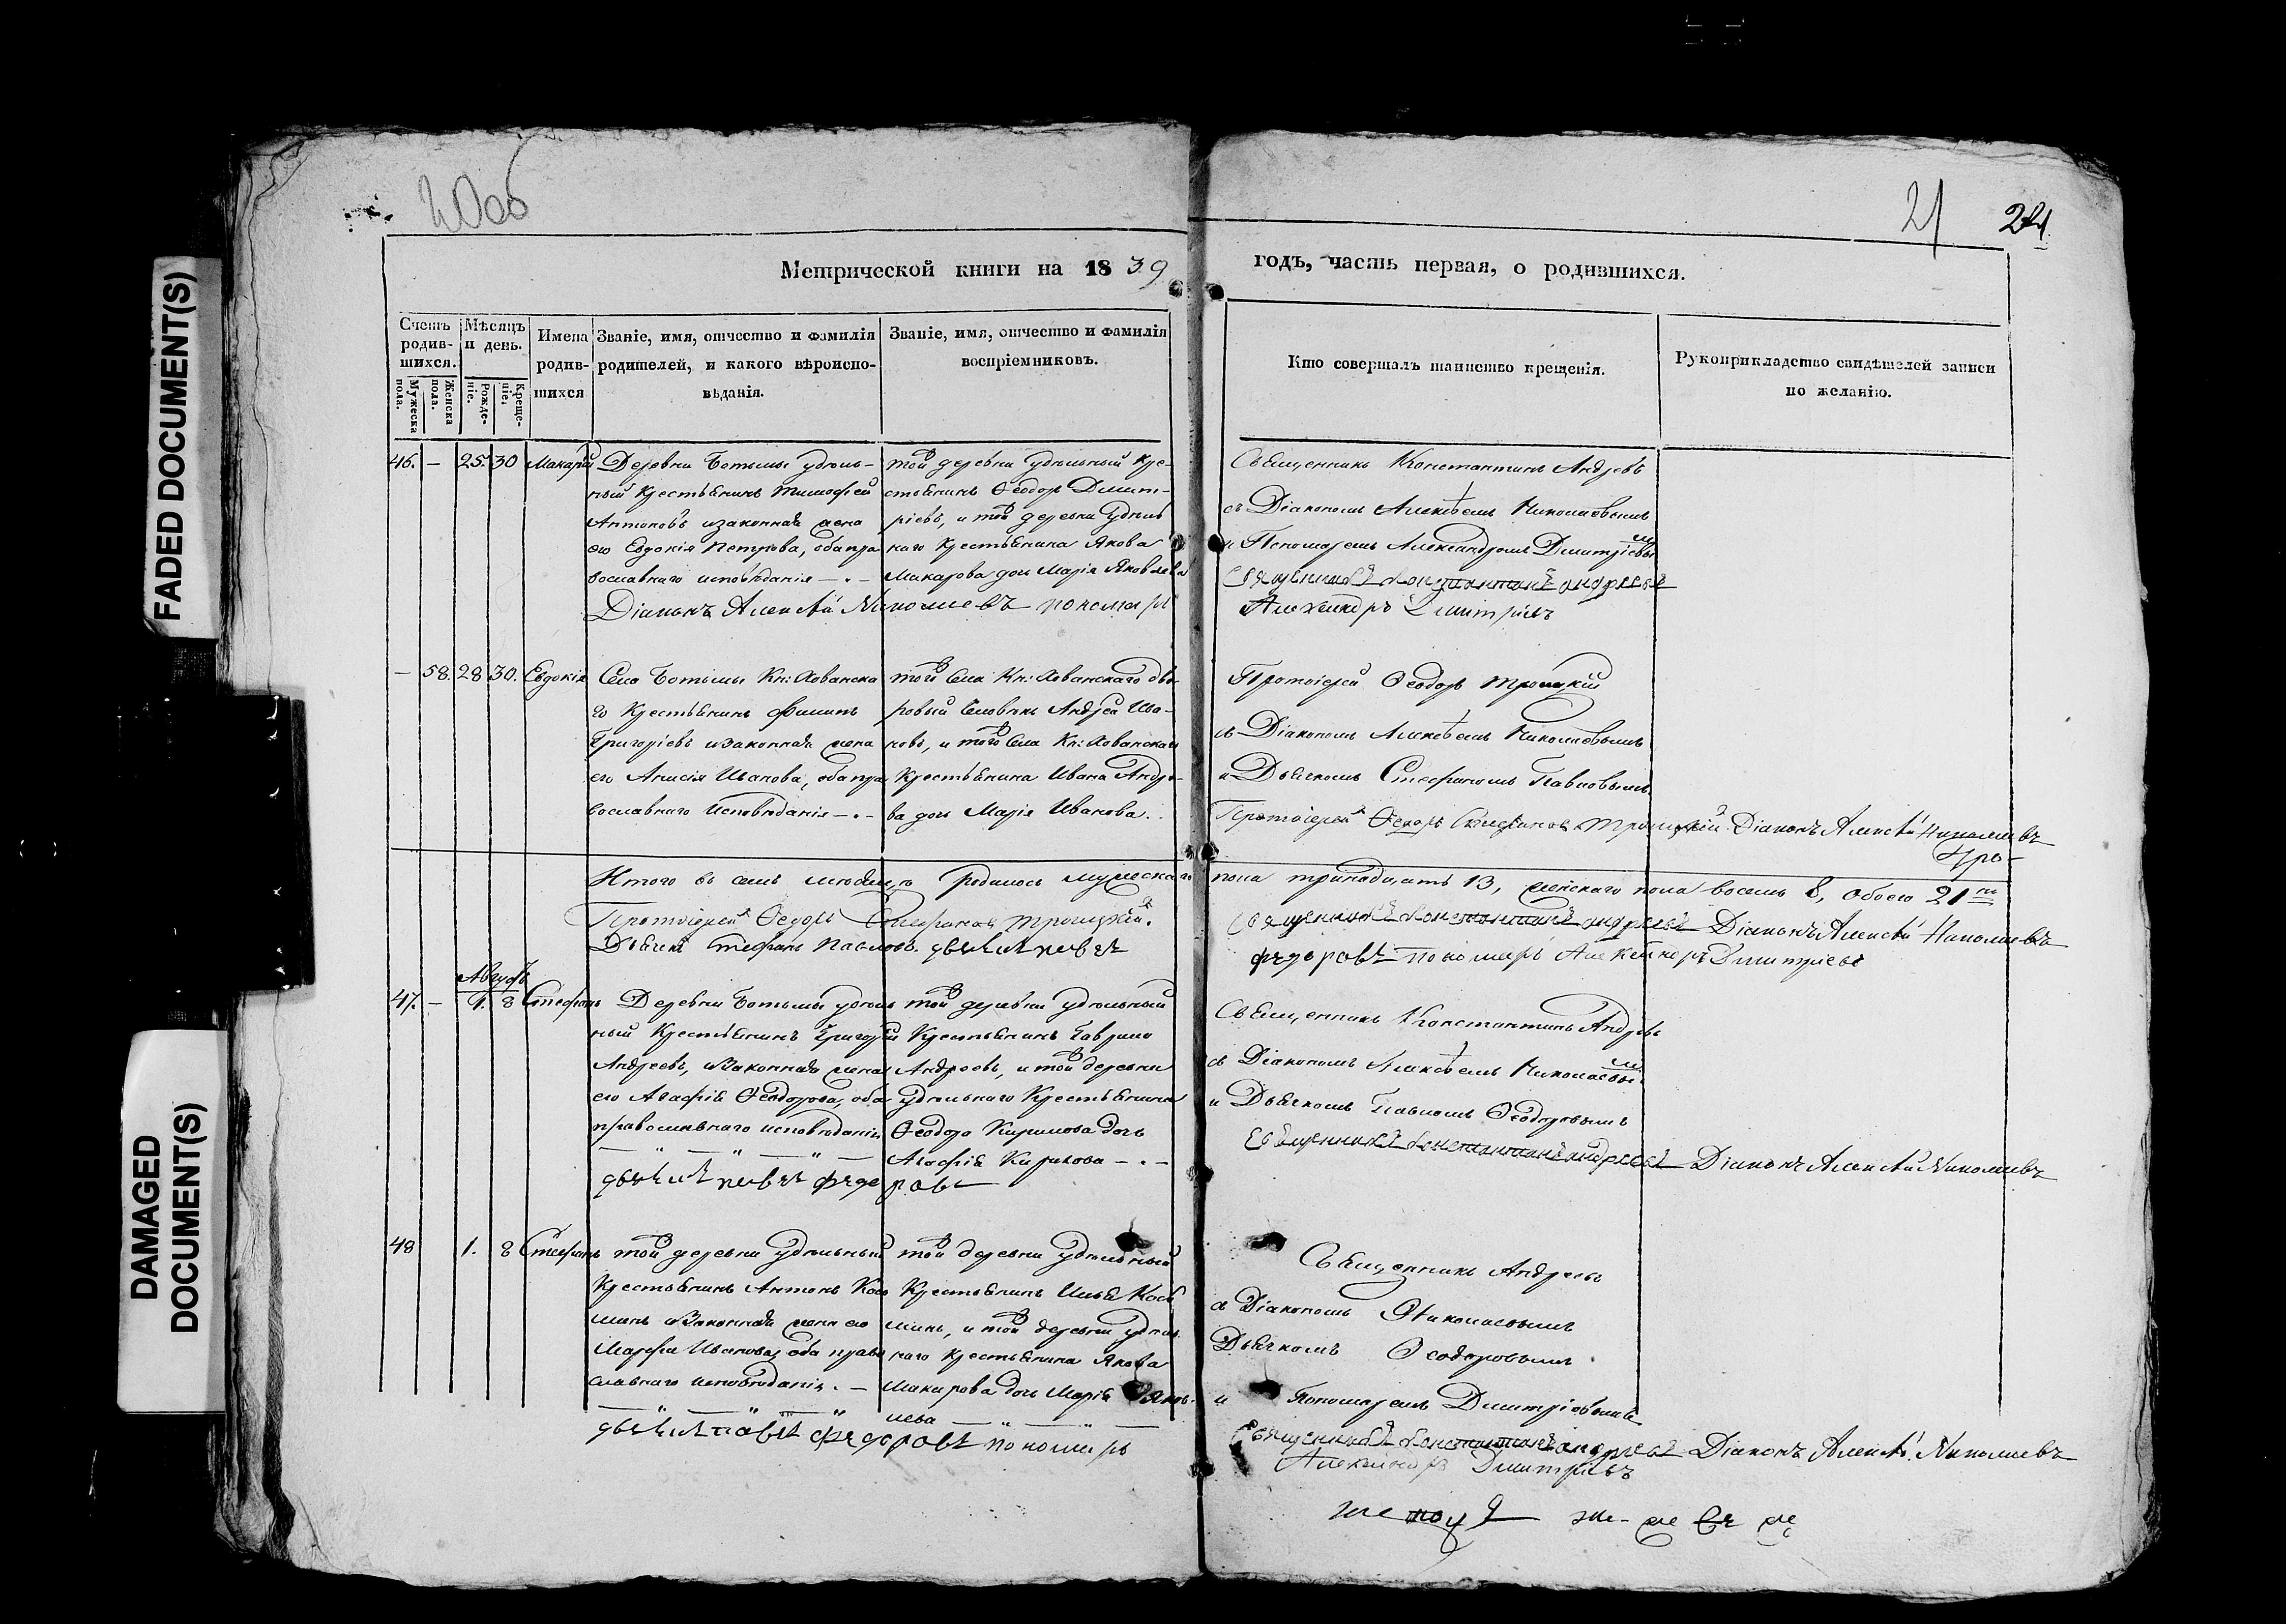 FADED DOCUMENT(S)
DAMAGED
DOCUMENT(S)
20об
21 21
Метрической книги на 1839
годъ, часть первая, о родившихся.
Счетъ родив-шихся.
Мужеска пола.
Женска пола.
Мѣсяцъ и день.
Рожде-ніе.
Креще-ніе.
Имена родив-шихся
Званіе, имя, отчество и фамилія
родителей, и какого вѣроиспо-
вѣданія.
Званіе, имя, отчество и фамилія
воспріемниковъ.
Кто совершалъ таинство крещенія.
Рукоприкладство свидѣтелей записи
по желанію.
46. — 25. 30 Макарій
Деревни Ботьмы удѣль-
ный Крестьянинъ Тимофей
Антоновъ изаконная жена
его Евдокія Петрова, оба пра
вославнаго исповѣданія —.—
той деревни удѣльный Кре-
стьянинъ Ѳеодоръ Димит-
ріевъ, и той деревни Удѣль
наго Крестьянина Якова
Макарова дочь Марія Яковлева
Священникъ Константинъ Андреевъ
съ Діакономъ Алексѣемъ Николаевымъ
и Пономаремъ Александромъ Димитріевы
Священникъ Константинъ Андреевъ
Діаконъ Алексѣй Николаевъ пономарь
Александръ Димитріевъ
— 58. 28 30. Евдокія
Села Ботьмы Кн: Хованска
го Крестьянинъ Филипъ
Григорьевъ изаконная жена
его Анисія Иванова, оба пра
вославнаго Исповѣданія —.—
того Села Кн: Хованскаго дво-
ровый Человѣкъ Андрей Ива-
новъ, и того Села Кн: Хованскаго
Крестьянина Ивана Андре-
ва дочь Марія Иванова.
Протоіерей Ѳеодоръ Троицкій
съ Діакономъ Алексѣемъ Николаевымъ
и Дьячкомъ Стефаномъ Павловымъ.
Протоіерей Ѳедоръ Стефановъ Троицкій Діаконъ Алексѣй Николаевъ
Итого въ семъ мѣсяцѣ родилось мужескаго пола тринадцать 13, женскаго пола восемь 8, обоего 21
Протоіерей Ѳедоръ Стефановъ Троицкій. Священникъ Константинъ Андреевъ Діаконъ Алексѣй Николаевъ
Дьячекъ Стефанъ Павловъ. дьячикъ павелъ федоровъ пономарь Александръ Димитріевъ
Августъ
47. — 1. 8 Стефанъ
Деревни Ботьмы удѣль
ный Крестьянинъ Григорій
Андреевъ, изаконная жена
его Агафія Ѳеодорова, оба
православнаго исповѣданія
той деревни удѣльный
Крестьянинъ Гаврило
Андреевъ, и той деревни
удѣльнаго Крестьянина
Ѳеодора Кирилова дочь
Агафія Кирилова —.—
дьячикъ павелъ федоровъ
Священникъ Константинъ Андреевъ
съ Діакономъ Алексѣемъ Николаевы
и Дьячкомъ Павломъ Ѳеодоровымъ
Священникъ Константинъ Андреевъ Діаконъ Алексѣй Николаевъ
48 1. 8 Стефанъ
той деревни Удѣльный
Крестьянинъ Антонъ Кось
минъ изаконная жена его
Марфа Иванова, оба право
славнаго исповѣданія. —
той деревни Удѣльный
Крестьянинъ Илья Кось
минъ, и той деревни удѣль
наго Крестьянина Якова
Макарова дочь Марія Яков-
лева
дьячикъ павелъ федоровъ пономарь
Священникъ Андреевъ
съ Діакономъ Николаевымъ
Дьячкомъ Ѳеодоровымъ
и Пономаремъ Димитріевымъ
Священникъ Константинъ Андреевъ Діаконъ Алексѣй Николаевъ
Александръ Димитріевъ